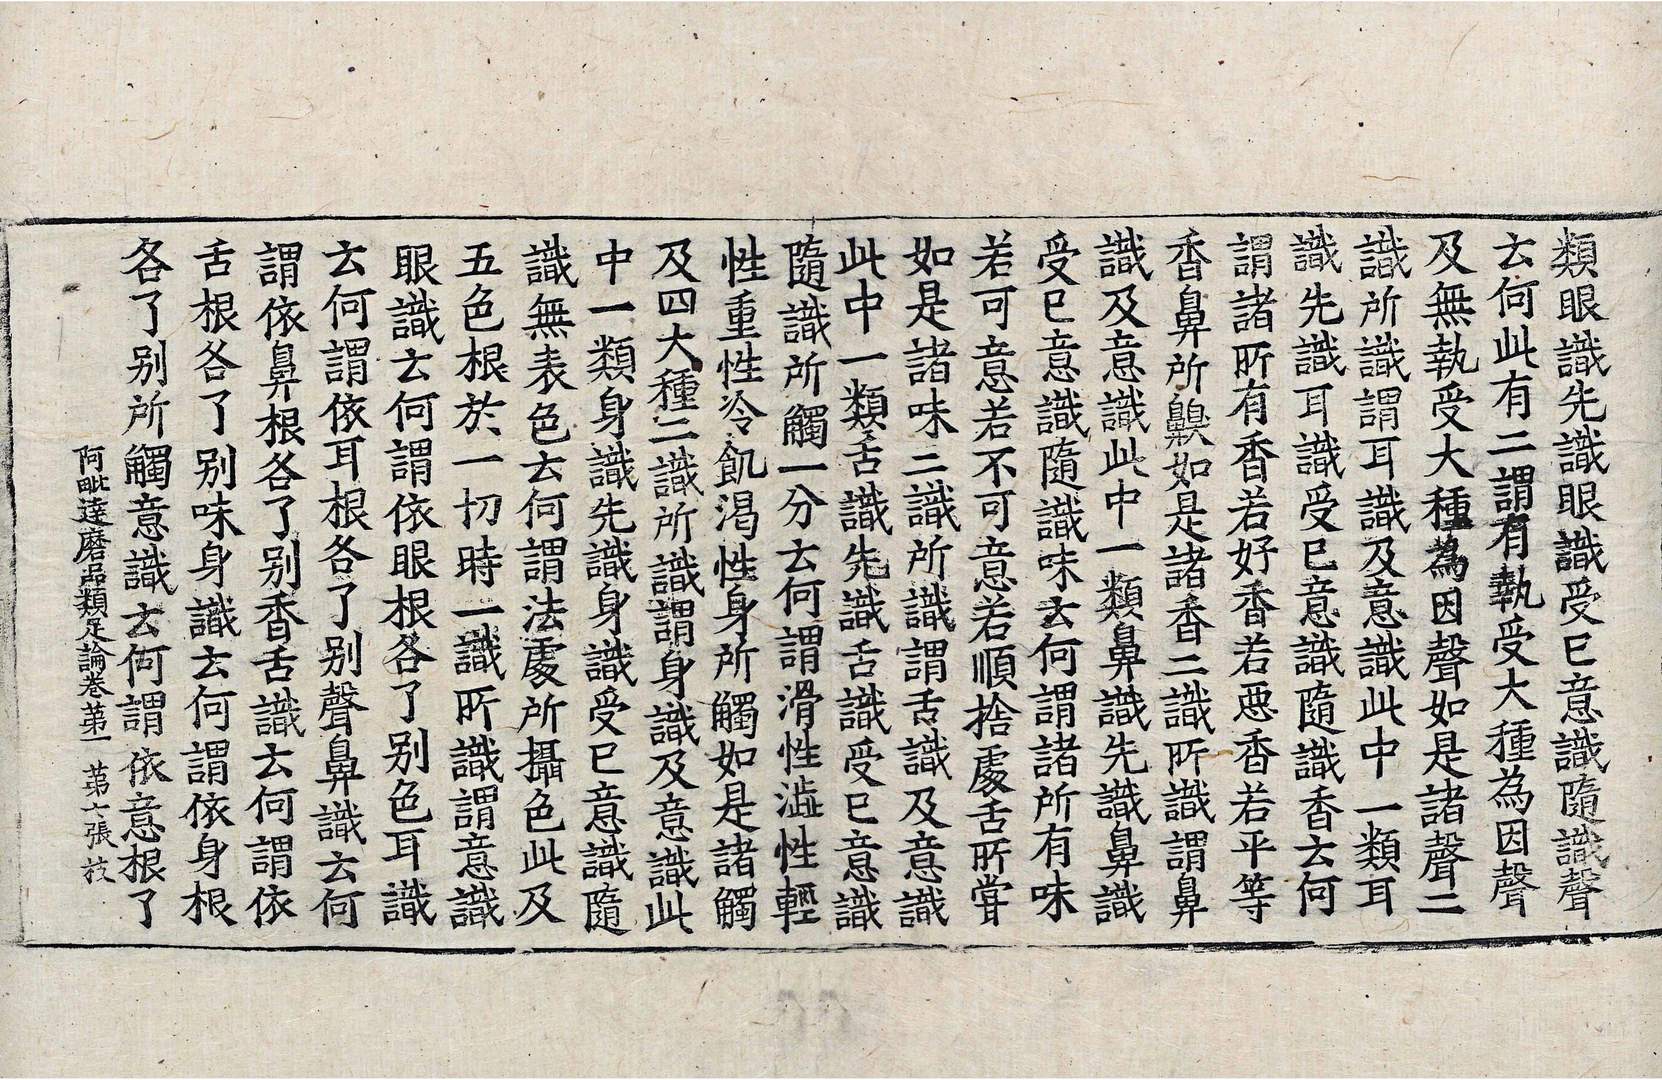 類眼識先識眼識受已意識隨識聲
云何此有二謂有執受大種為因聲
及無執受大種為因聲如是諸聲二
識所識謂耳識及意識此中一類耳
識先識耳識受已意識隨識香云何
謂諸所有香若好香若惡香若平等
香鼻所齅如是諸香二識所識謂鼻
識及意識此中一類鼻識先識鼻識
受已意識隨識味云何謂諸所有味
若可意若不可意若順捨處舌所甞
如是諸味二識所識謂舌識及意識
此中一類舌識先識舌識受已意識
隨識所觸一分云何謂滑性澁性輕
性重性冷飢渴性身所觸如是諸觸
及四大種二識所識謂身識及意識此
中一類身識先識身識受已意識隨
識無表色云何謂法處所攝色此及
五色根於一切時一識所識謂意識
眼識云何謂依眼根各了别色耳識
云何謂依耳根各了别聲鼻識云何
謂依鼻根各了别香舌識云何謂依
舌根各了别味身識云何謂依身根
各了别所觸意識云何謂依意根了
阿毗達磨品類足論卷第一 第六張 枝